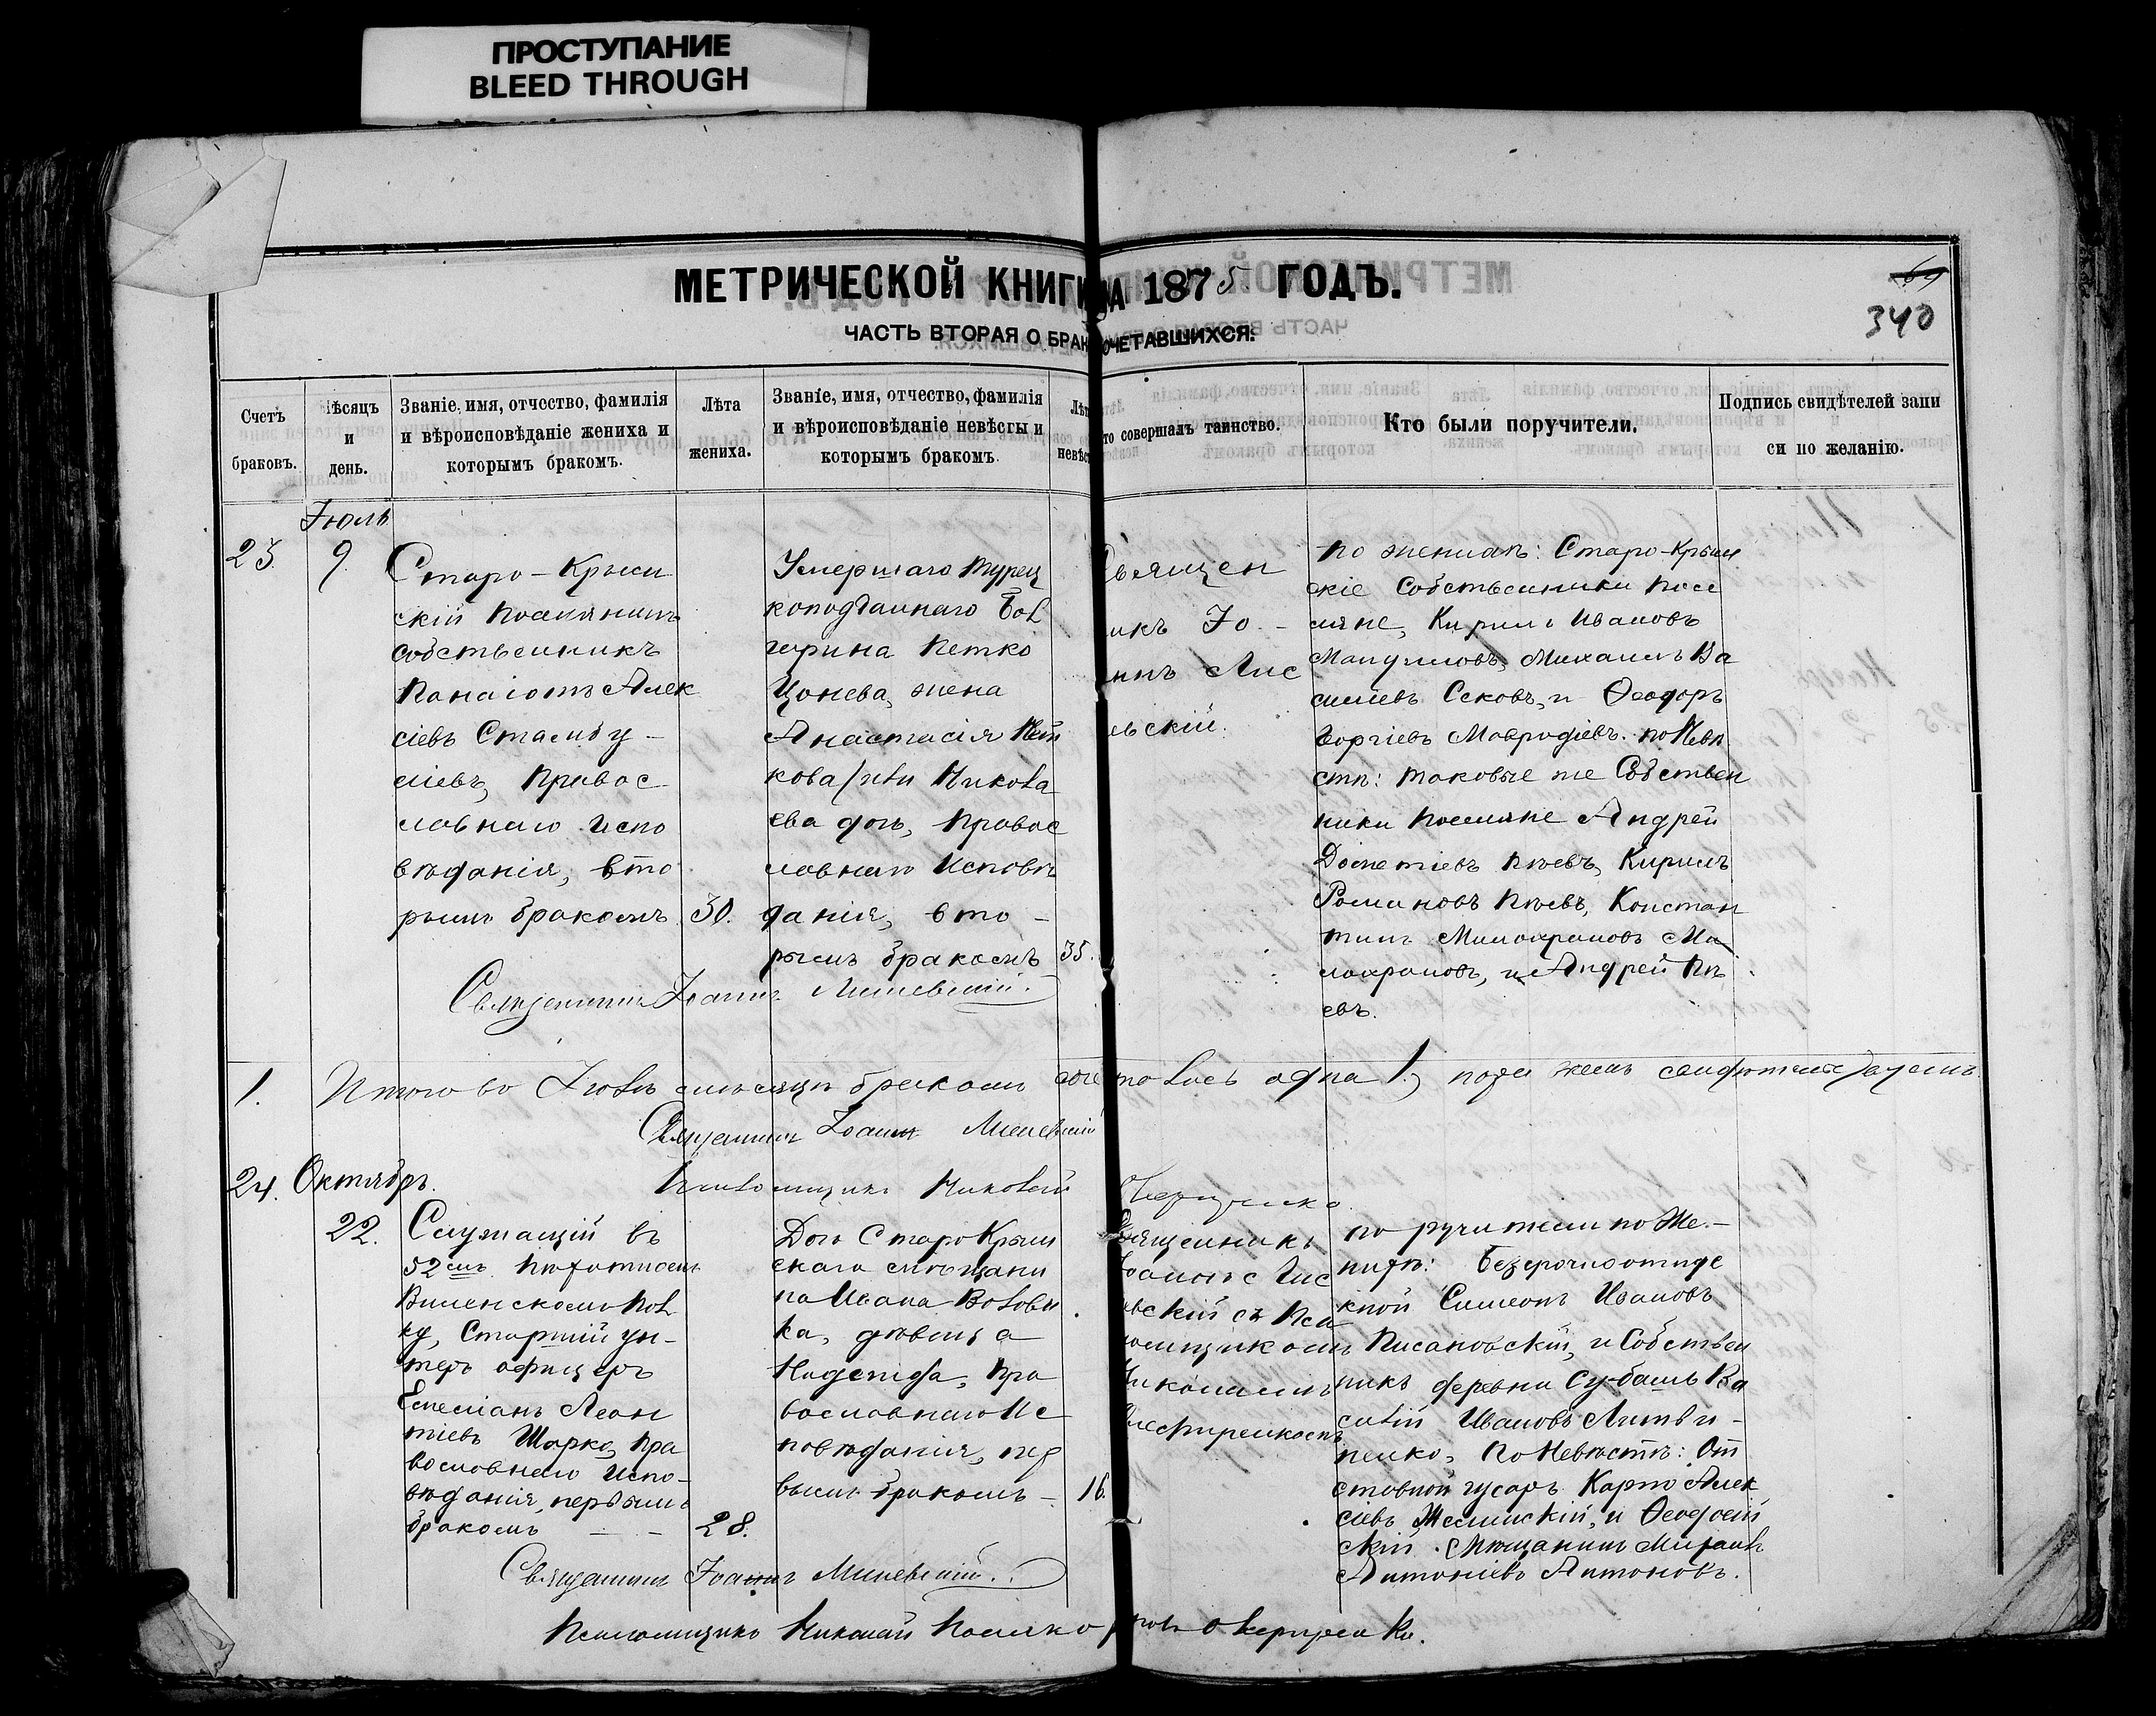 ПРОСТУПАНИЕ
BLEED THROUGH
МЕТРИЧЕСКОЙ КНИГИ НА 1875 ГОДЪ.
69
340
ЧАСТЬ ВТОРАЯ О БРАКОСОЧЕТАВШИХСЯ.
Счетъ
браковъ.
Мѣсяцъ
и
день.
Званіе, имя, отчество, фамилія
и вѣроисповѣданіе жениха и
которымъ бракомъ.
Лѣта
жениха.
Званіе, имя, отчество, фамилія
и вѣроисповѣданіе невѣсты и
которымъ бракомъ
то совершалъ таинство.
Кто были поручители.
Подпись свидѣтелей запи
си по желанію.
Іюль
23.
9.
Старо-Крым
скій поселянинъ
собственникъ
Панаіотъ Алек
сіевъ Стамбу-
ліевъ, правос
лавнаго испо
вѣданія, вто
рымъ бракомъ.
30.
Умершаго турец
коподданнаго Бол
гарина Петко
Цонева, жена
Анастасія Пет
кова
Никола
ева дочь, правос
лавнаго исповѣ
данія, вто-
рымъ бракомъ
35.
Священ
икъ Іо-
ннъ Лис
евскій.
по женихѣ: Старо-Крым
скіе собственники посе
ляне, Кирилъ Ивановъ
Михаилъ Ва
силіевъ Сековъ, и Ѳеодоръ
Георгіевъ Мавродіевъ. по невѣ
стѣ: таковые же Собствен
ники поселяне Андрей
Кирилъ
Романовъ
Констан
тинъ
и Андрей
евъ.
Священникъ Іоаннъ
1.
Итого во Іюлѣ мѣсяцѣ бракомъ соче талось одна 1.
Священникъ Іоаннъ
24.
Октябрь.
Николай
22.
Служащій въ
52мъ пѣхотномъ
Виленскомъ пол
ку, Старшій ун-
теръ офицеръ
Емеліанъ Леон
тіевъ Шарко, пра
вославнаго испо-
вѣданія, первымъ
бракомъ
28.
Дочь СтароКрым
скаго мѣщани
на Ивана Волови
ка, дѣвица
Надежда, пра
вославнаго ис
повѣданія, пер
вымъ бракомъ-
16.
Священникъ
евскій съ Пса
ломщикомъ
Николаемъ
поручители по же-
нихѣ: Безсрочноотпус
кной Симеонъ Ивановъ
Писановскій, и Собствен
никъ деревни Субашъ Ва
силій Ивановъ Литви-
ненко, по невѣстѣ: От
ставной гусаръ Карпъ Алек
сіевъ
и Ѳеодосій
скій мѣщанинъ Михаилъ
Антоніевъ Антоновъ.
Священникъ Іоаннъ
Псаломщикъ Николай